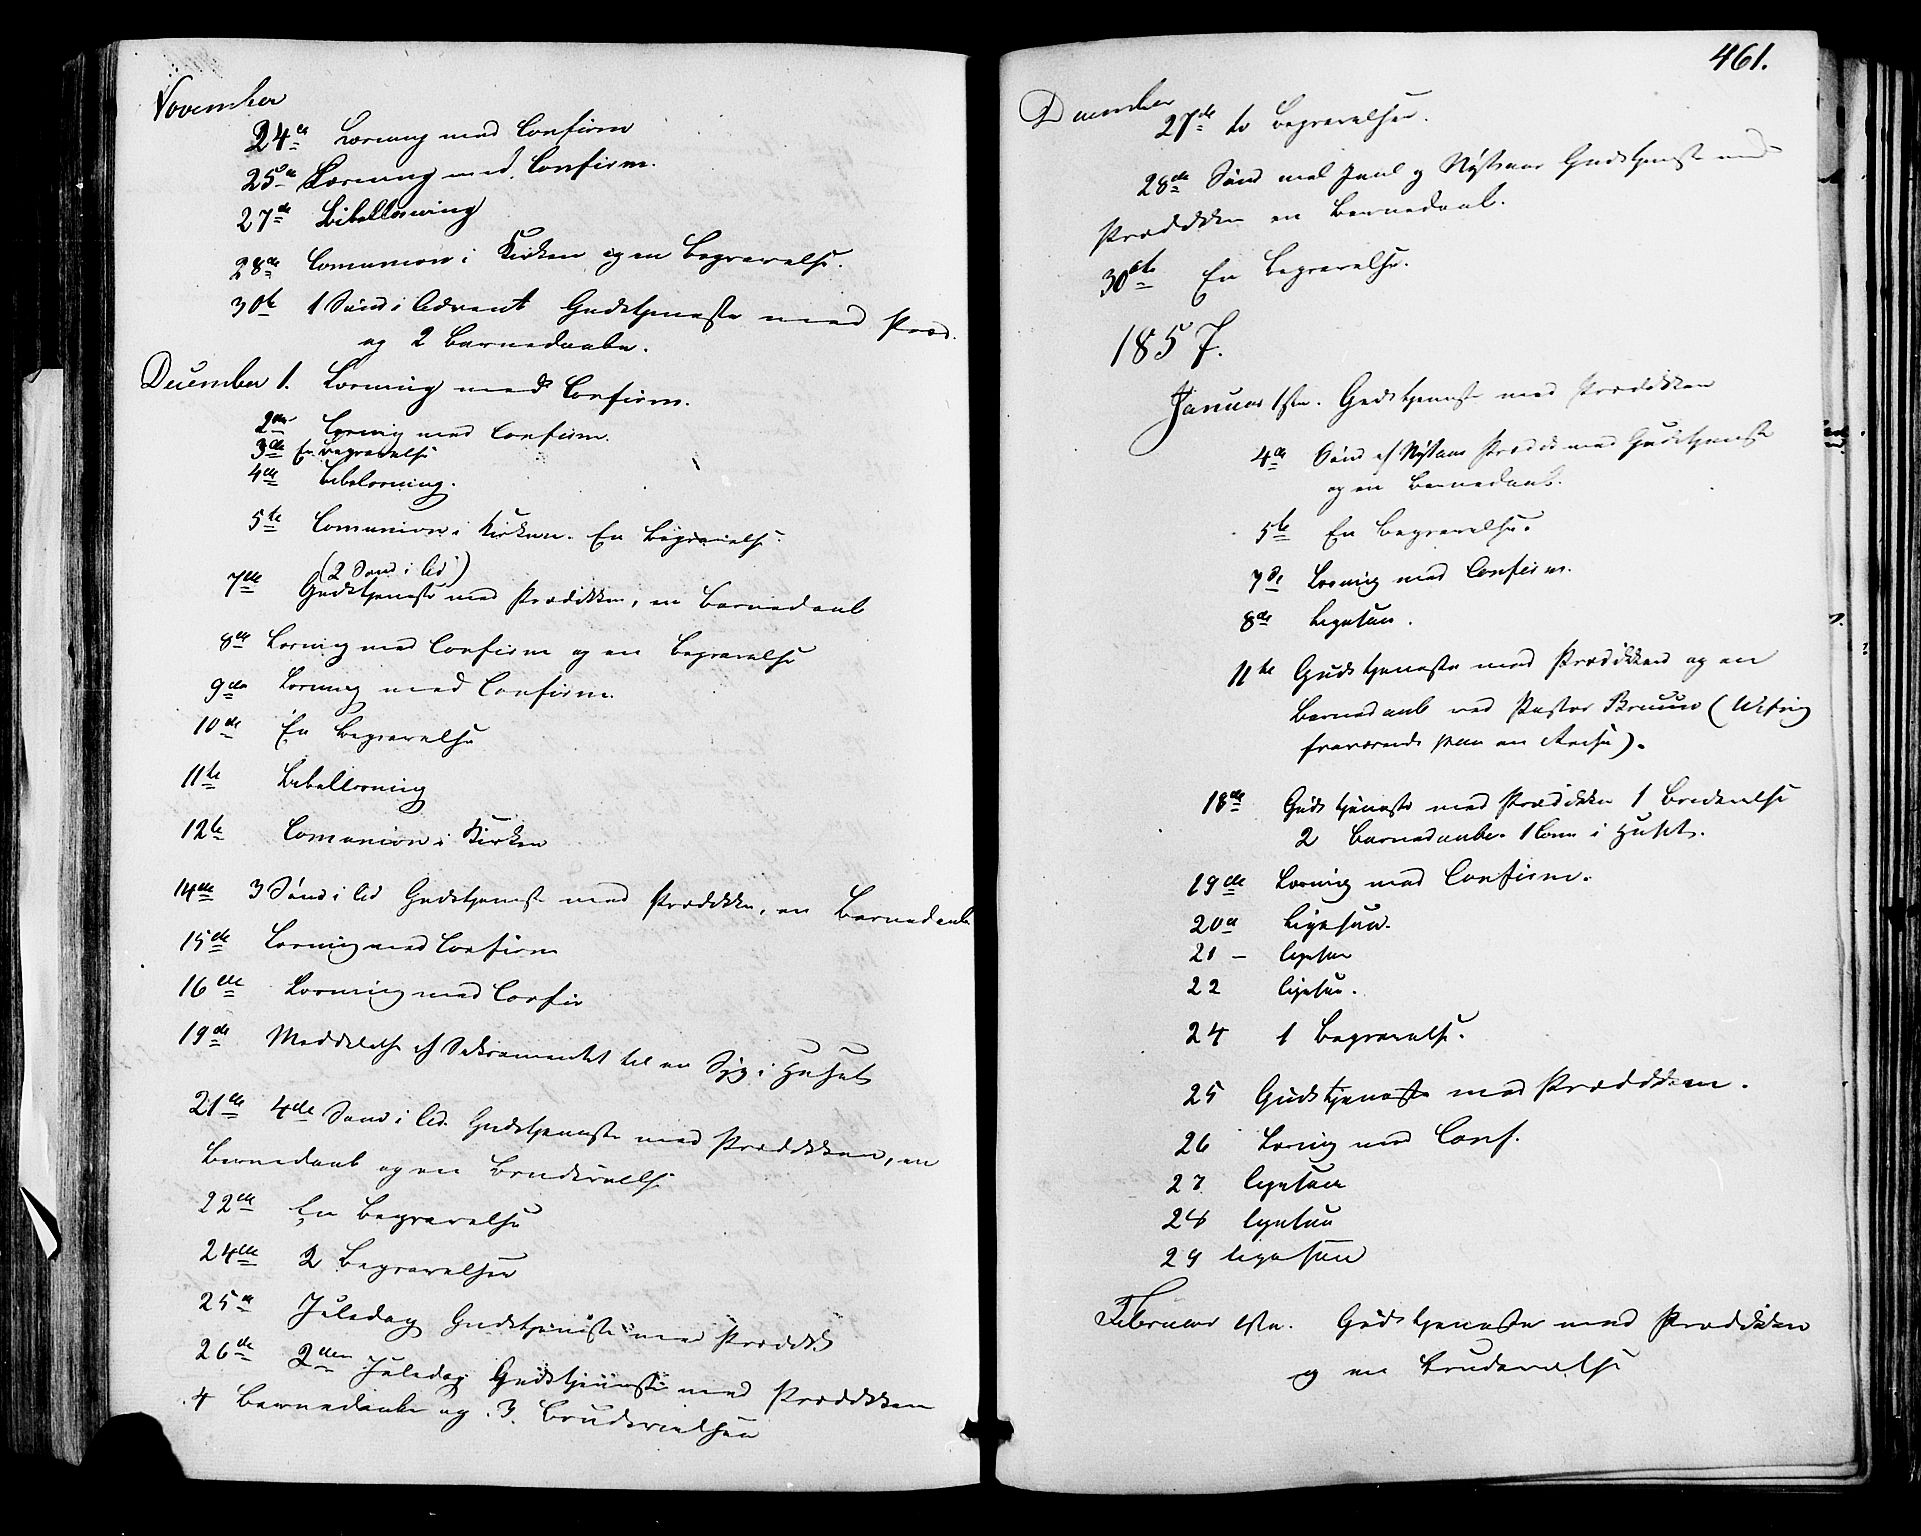 November
24de Læsning med Confirm
25de Læsning med Confirm.
27de Bibellæsning
28de Comunion i Kirken og en Begravelse.
30te 1 Sønd i Advent Gudstjeneste med Præd.
og 2 Barnedaabe.
December 1. Læsning med Confirm.
2den Læsning med Confirm.
3de En Begravelse
4de Bibelæsning.
5te Comunion i Kirken. En Begravelse
(2 Sønd i Ad)
7de Gudstjeneste med Prædikken, en Barnedaab
8de Læsning med Confirm og en Begravelse
9de Læsning med Confirm.
10de En Begravelse
11te Bibellæsning
12te Comunion i Kirken
14de 3 Sønd i Ad Gudstjeneste med Prædikken, en Barnedaab
15de Læsning med Confirm
16de Læsning med Confir
19de Meddelelse af Sakramentet til en Syg i Huset
21de 4de Sønd i Ad. Gudstjeneste med Prædikken, en
Barnedaab og en Brudevielse
22de En Begravelse
24de 2 Begravelser
25de Juledag Gudstjeneste med Prædik
26de 2den Juledag Gudstjeneste med Prædikken
4 Barnedaabe og 3 Brudevielser
461.
December
27de to Begravelser.
28de Sønd mel Juul og Nytaar Gudstjeneste med
Prædikken en Barnedaab.
30te En Begravelse.
1857.
Januar 1ste. Gudstjeneste med Prædikken
4de Sønd ef Nytaar Prædik med Gudstjeneste
og en Barnedaab.
5te En Begravelse.
7de Læsning med Confirm.
8de ligesaa.
11te Gudstjeneste med Prædikken og en
Barnedaab ved Pastor Bruun (
fraværende paa en Reise).
18de Gudstjeneste med Prædikken 1 Brudevielse
2 Barnedaabe 1 Com i Huset.
19de Læsning med Confirm.
20de ligesaa.
21 - ligesaa
22 ligesaa.
24 1 Begravelse.
25 Gudstjeneste med Prædikken.
26 Læsnig med Conf.
27 ligesaa
28 ligesaa
29 ligesaa
Februar 1ste. Gudstjeneste med Prædikken
og en Brudevielse